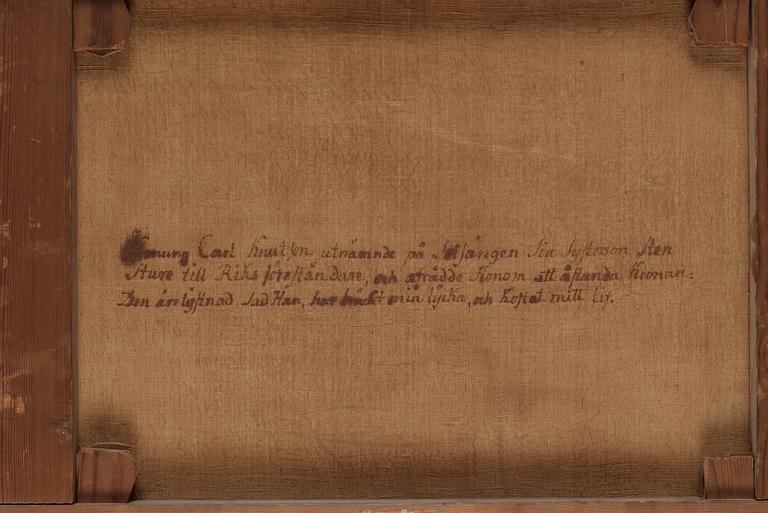 Konung Carl Knutson utnämnde på Sotsängen Sin Systerson Sten
Sture till Riks föreståndare, och afrådde Honom att åstunda Kronan:
Den äre lystnad, Sad Han, har bräckt min lycka, och kostat mitt lif.